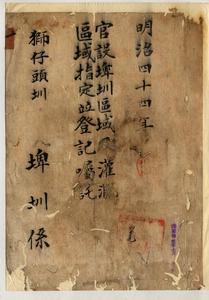 明治四十四年
官設埤圳區域ノ灌漑
區域指定並登記囑託
獅仔頭圳
埤圳係